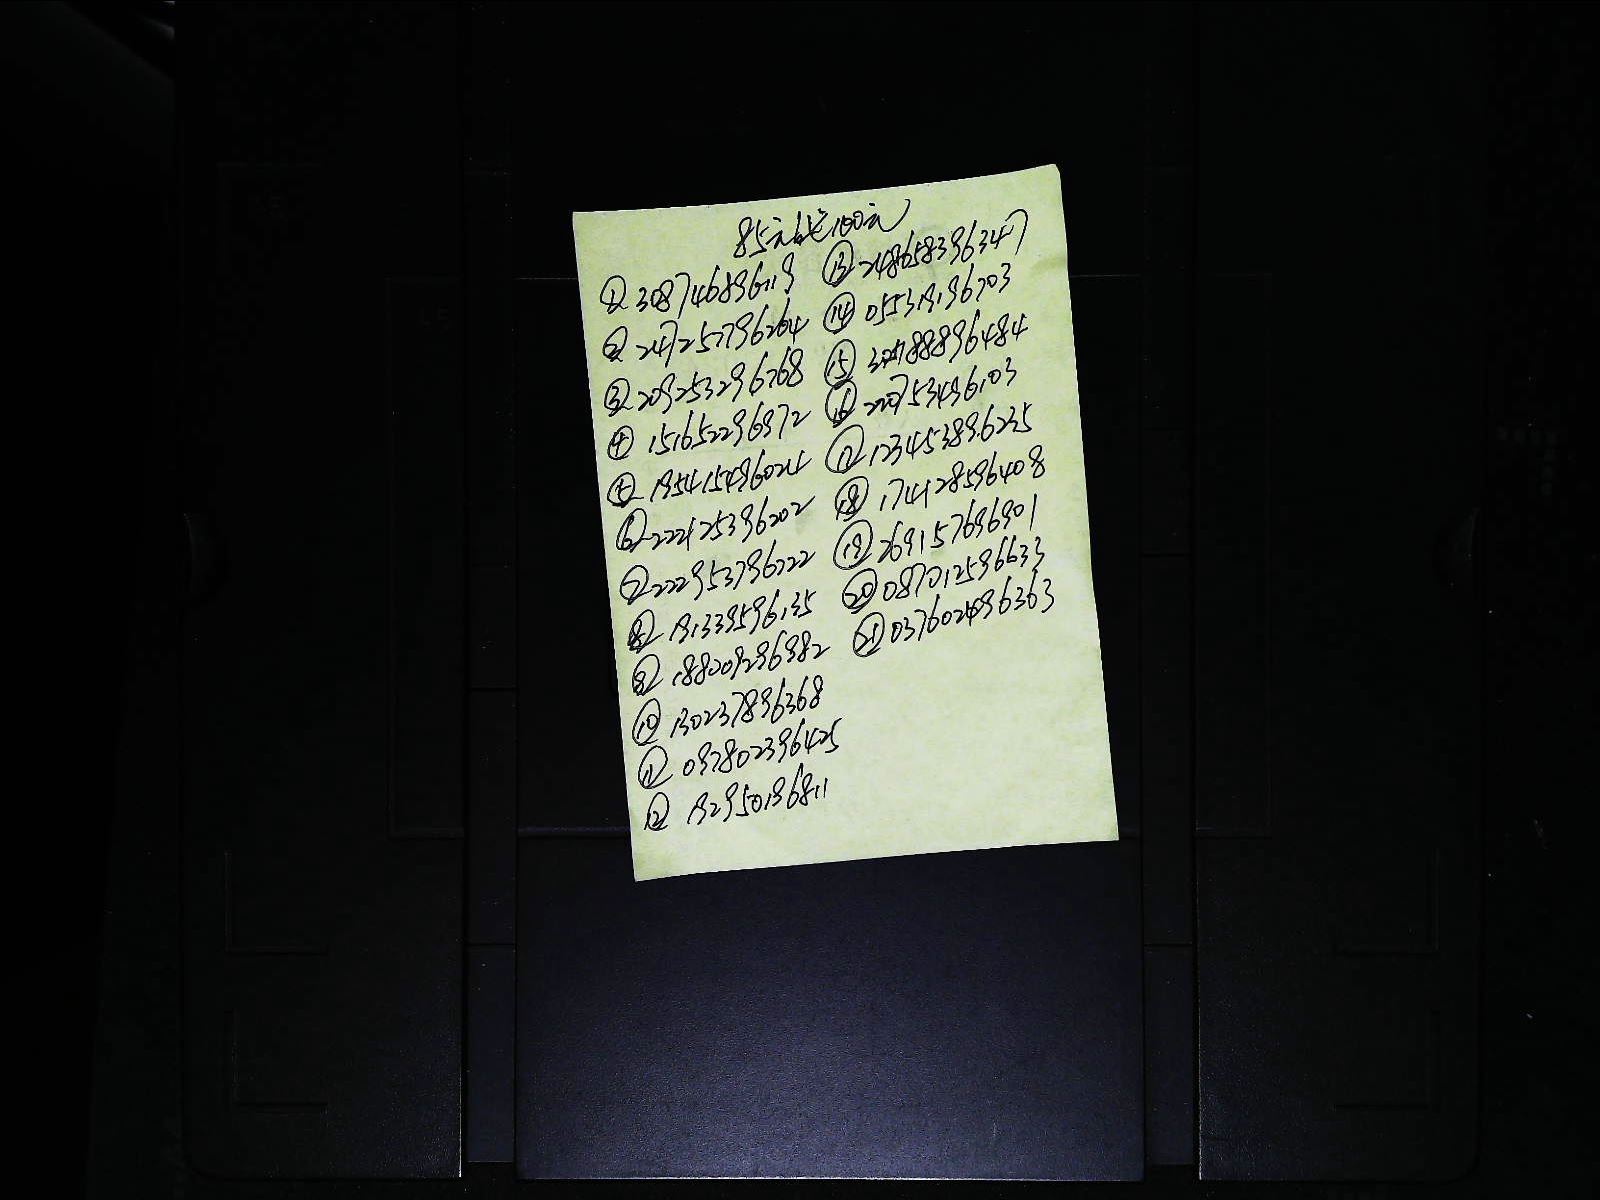 85元代100元
① 308746896119
② 247257796264
③ 209253296768
④ 151652296972
⑤ 195415496024
⑥ 222425396202
⑦ 222953796722
⑧ 191339596135
⑨ 188209296982
⑩ 130237896368
⑪ 097802396425
⑫ 192950196811
⑬ 248658396347
⑭ 055319196703
⑮ 304788896484
⑯ 220753496103
⑰ 123453896235
⑱ 174128596408
⑲ 269157696901
⑳ 087012596633
㉑ 037602496363